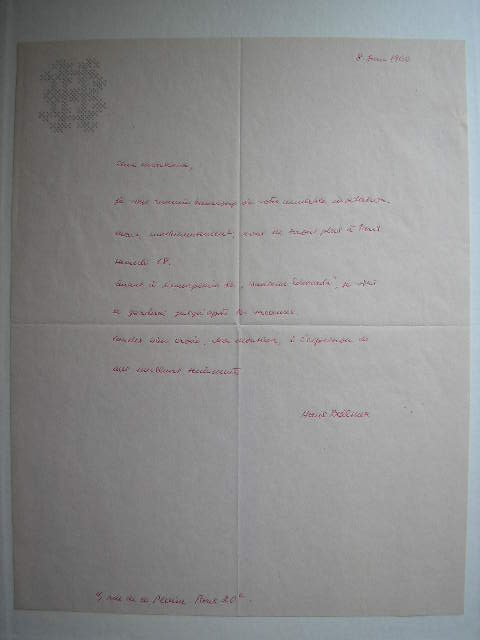 8 Juin 1960
Cher monsieur,
Je vous remercie beaucoup de votre aimable invitation
mais, malheureusement, nous ne serons plus à Paris
samedi 18.
Quant à l'exemplaire de , je
le garderai jusqu'après les vacances.
Veuillez bien croire, cher monsieur, à l'expression de
mes meilleurs sentiments
Hans Bellmer
rue de la Plaine Paris 20e